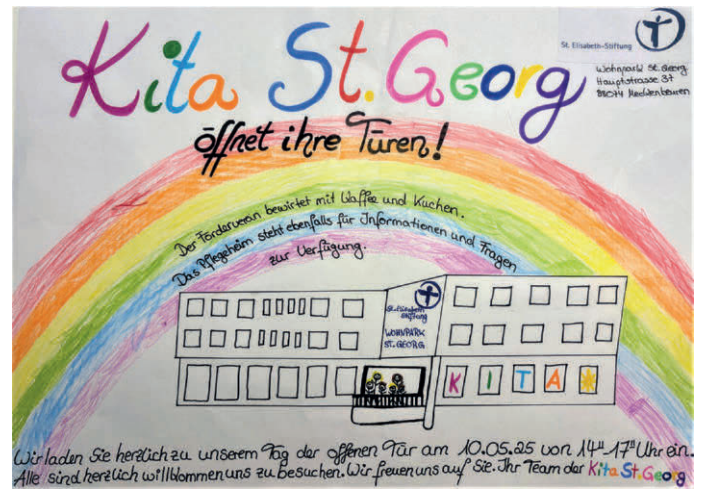 Kita St. Georg
öffnet ihre Türen!
St. Elisabeth-Stiftung
Wohnpark St. Georg
Hauptstrasse 37
88074 Meckenbeuren
Der Förderverein bewirtet mit Kaffee und Kuchen.
Das Pflegeheim steht ebenfalls für Informationen und Fragen
zur Verfügung.
St. Elisabeth
Stiftung
WOHNPARK
ST. GEORG
KITA
Wir laden Sie herzlich zu unserem Tag der offenen Tür am 10.05.25 von 14⁰⁰-17⁰⁰ Uhr ein.
Alle sind herzlich willkommen uns zu besuchen. Wir freuen uns auf Sie. Ihr Team der Kita St. Georg